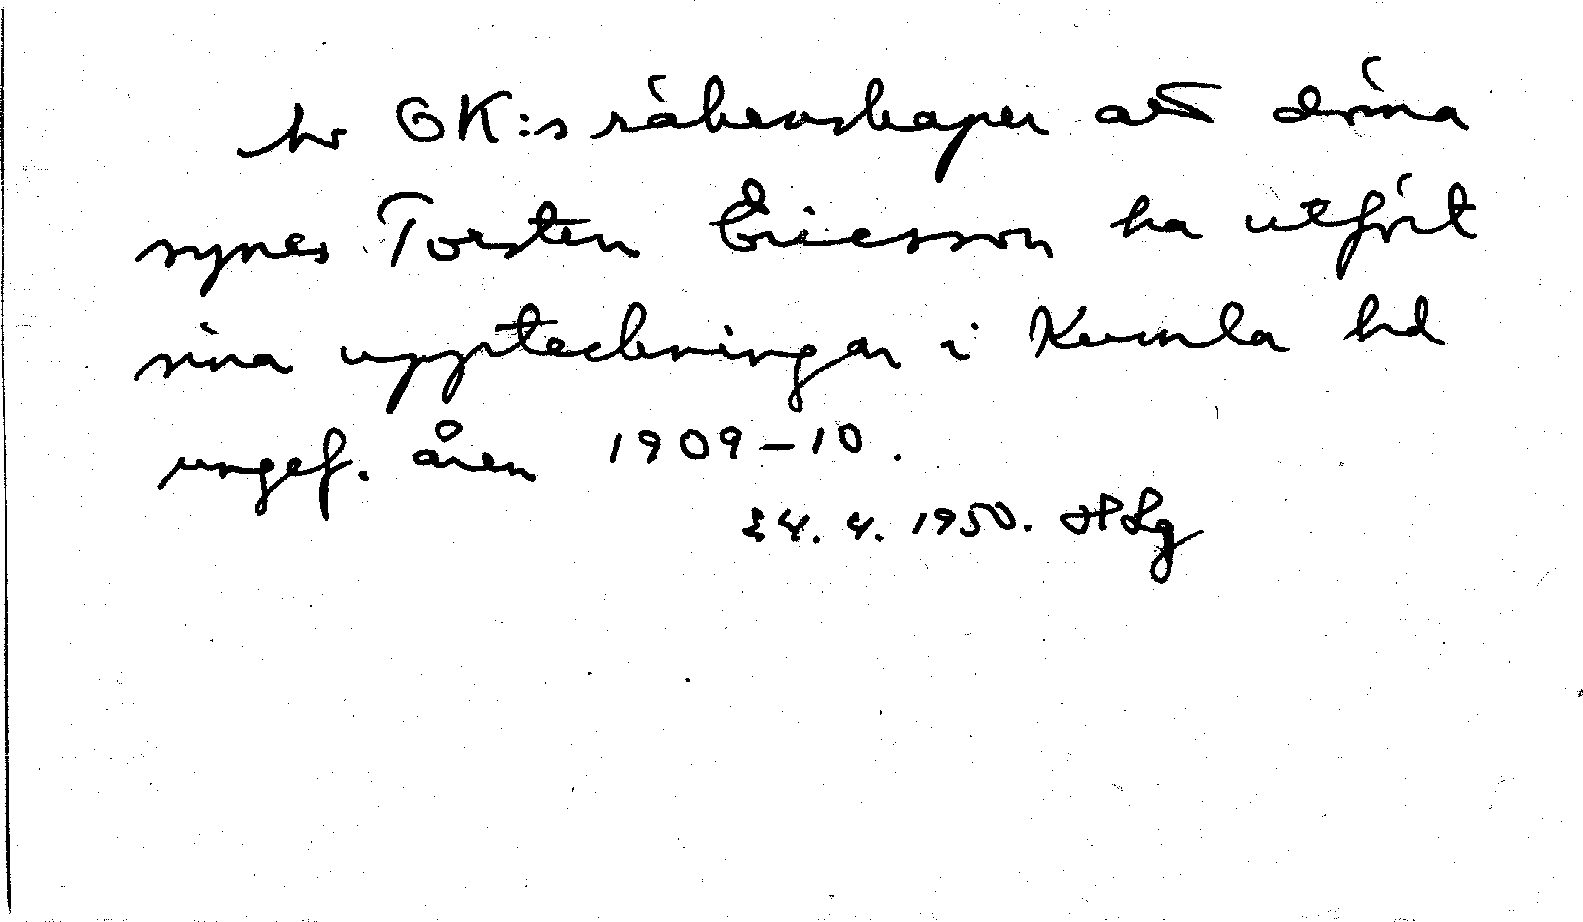 Av OK:s räkenskaper att döma
synes Torsten Ericsson ha utfört
sina uppteckningar i Kumla hd
ungef. åren 1909–10.
24.4.1950. HLg